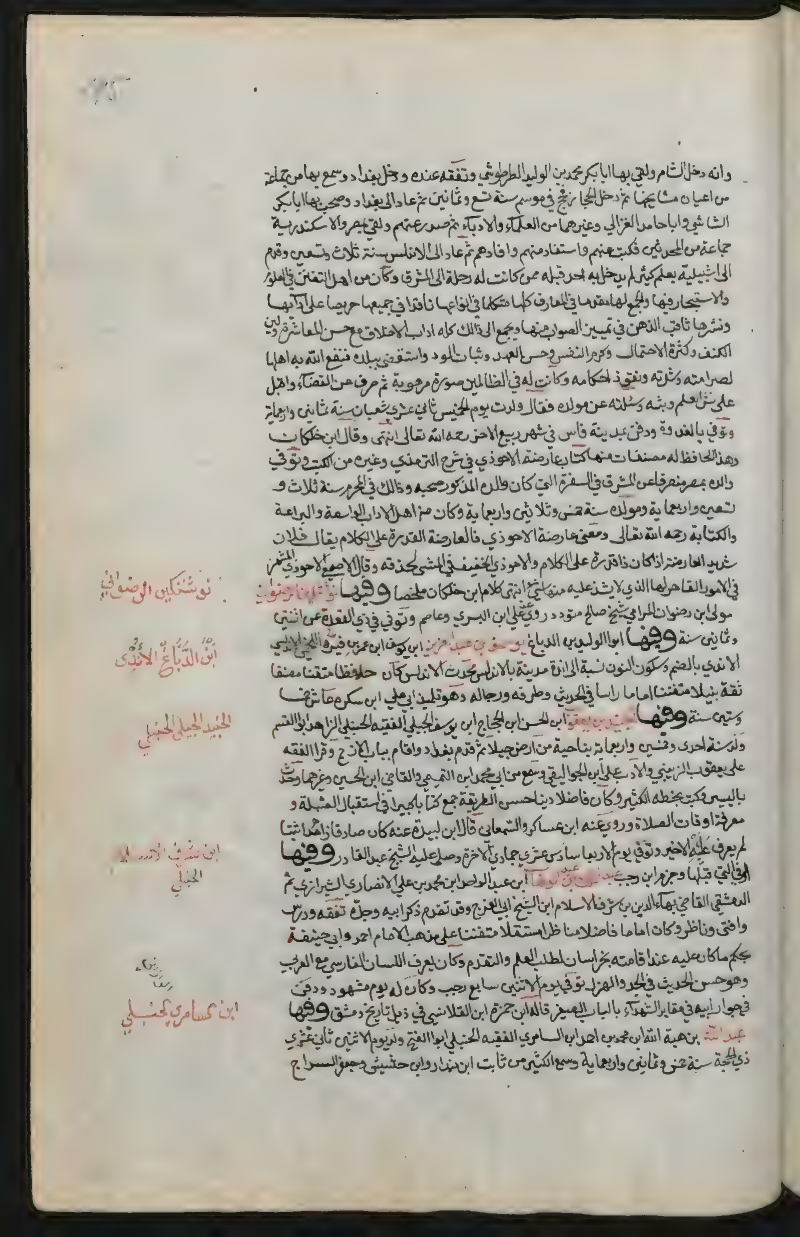 وانه دخل الشام ولقي بها ابا بكر محمد بن الوليد الطرطوشي وتفقه عنده ودخل بغداد وسمع بها من جماعة
من اعيان مشايخها ثم دخل الحجاز فحج في موسم سنة تسع وثمانين ثم عاد الى بغداد وصحب بها ابا بكر
الشاشي وابا حامد الغزالي وغيرهما من العلماء والادباء ثم صدر عنهم ولقي بمصر والاسكندرية
جماعة من المحدثين فكتب عنهم واستفاد منهم وافادهم ثم عاد الى الاندلس سنة ثلاث وتسعين وقدم
الى اشبيلية بعلم كثير لم يدخل به احد قبله ممن كانت له رحلة الى المشرق وكان من اهل التفنن في العلوم
والاستبحار فيها والجمع لها مقدما في المعارف كلها متكلما في انواعها نافذا في جميعها حريصا على ادائها
ونشرها ثاقب الذهن في تمييز الصواب منها ويجمع الى ذالك كله اداب الاخلاق مع حسن المعاشرة ولين
الكنف وكثرة الاحتمال وكرم النفس وحسن العهد وثبات الود واستقضي ببلده فنفع الله به اهلها
لصرامته وشدته ونفوذ احكامه وكانت له في الظالمين صورة مرهوبة ثم صرف عن القضاء واقبل
على نشر العلم وبثه وسئلته عن مولده فقال ولدت يوم الخميس ثاني عشري شعبان سنة ثمانين واربعماية
وتوفي بالعدوة ودفن بمدينة فاس في شهر ربيع الاخر رحمه الله تعالى انتهى وقال ابن خلكان
وهذا الحافظ له مصنفات منها كتاب عارضة الاحوذي في شرح الترمذي وغيره من الكتب وتوفي
والده بمصر منصرفا عن المشرق في السفرة التي كان ولده المذكور صحبه وذالك في المحرم سنة ثلاث و
تسعين واربعماية ومولده سنة خمس وثلاثين واربعماية وكان من اهل الاداب الواسعة والبراعة
والكتابة رحمه الله تعالى ومعنى عارضة الاحوذي فالعارضة القدرة على الكلام يقال فلان
شديد العارضة اذا كان ذا قدرة على الكلام والاحوذي الخفيف في المشي لحذقه وقال الاصمعي الاحوذي المشمر
في الامور القاهر لها الذي لا يشذ عليه منها شي انتهى كلام ابن خلكان ملخصا وفيها
مولى ابن رضوان المراتبي شيخ صالح متودد روى عن علي ابن البسري وعاصم وتوفي في ذي القعدة عن اثنتين
وثمانين سنة وفيها ابوا الوليد بن الدباغ يوسف بن عبد العزيز ابن يوسف ابن عمر بن فيره اللخمي الاندلسي
الاندي بالضم وسكون النون نسبة الى اندة مدينة بالاندلس محدث الاندلس كان حافظا متقنا مصنفا
ثقة نبيلا متفننا اماما راسا في الحديث وطرقه ورجاله وهو تلميذ ابي علي ابن سكرة عاش خمسا
وستين سنة وفيها الجنيد بن يعقوب ابن الحسن ابن الحجاج ابن يوسف الجيلي الفقيه الحنبلي الزاهد ابوا القسم
ولد سنة احدى وخمسين واربعماية بناحية من ارض جيلان ثم قدم بغداد واقام بباب الازج وقرا الفقه
على يعقوب الزينبي والادب على ابن الجواليقي وسمع من ابي محمد ابن التميمي والقاضي ابن الحسين وغيرهما وحدث
باليسير وكتب بخطه الكثير وكان فاضلا دينا حسن الطريقة جمع كتابا كبيرا في استقبال القبلة و
معرفة اوقات الصلاة وروى عنه ابن عساكر والسمعاني قال ابن لبيدة عنه كان صادقا زاهدا ثبتا
لم يعرف عليه الا خير وتوفي يوم الاربعا سادس عشري جمادى الاخرة وصلى عليه الشيخ عبد القادر وفيها
او في التي قبلها وجزم ابن رجب ابن عبد الواحد ابن محمد بن علي الانصاري الشيرازي ثم
الدمشقي القاضي بهاء الدين بن شرف الاسلام ابن الشيخ ابي الفرج وقد تقدم ذكر ابيه وجده تفقه ودرس
وافتى وناظر وكان اماما فاضلا مناظرا مستقلا متفننا على مذهب الامام احمد وابي حنيفة
بحكم ما كان عليه عند اقامته بخراسان لطلب العلم والتقدم وكان يعرف اللسان الفارسي مع العربي
وهو حسن الحديث في الجد والهزل توفي يوم الاثنين سابع رجب وكان له يوم مشهود ودفن
في جوار ابيه في مقابر الشهداء بالباب الصغير قاله ابن حمزة ابن القلانسي في ذيل تاريخ دمشق وفيها
عبد الله بن هبة الله ابن محمد بن احمد ابن السامري الفقيه الحنبلي ابوا الفتح ولد يوم الاثنين ثاني عشري
ذي الحجة سنة خمس وثمانين واربعماية وسمع الكثير من ثابت ابن بندار وابن حشيش وجعفر السراج
نوشتكين الرضواني
ابن الدباغ الاندي
الجنيد الجيلي الحنبلي
ابن شرف الاسلام
الحنبلي
ابن السامري الحنبلي